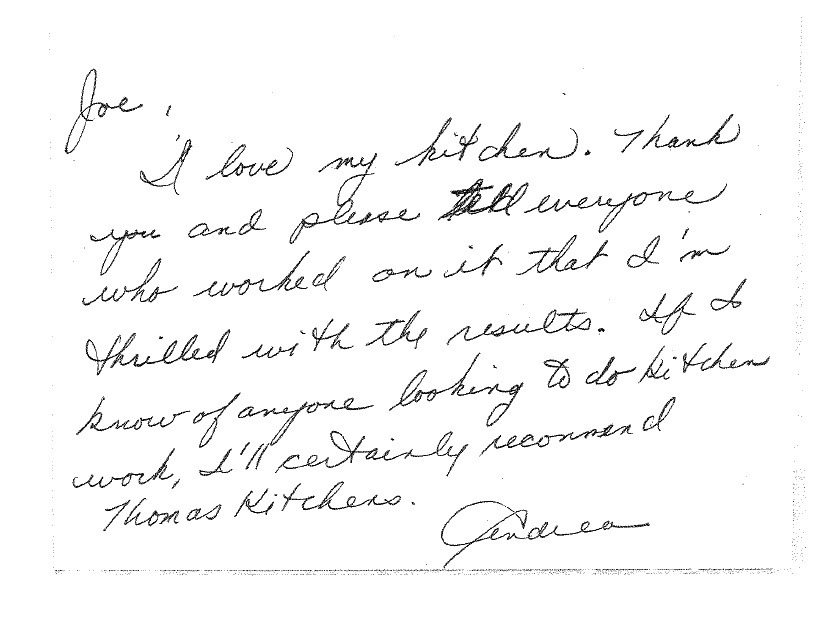 Joe,
I love my kitchen. Thank
you and please tell everyone
who worked on it that I'm
thrilled with the results. If I
know of anyone looking to do kitchen
work, I'll certainly recommend
Thomas Kitchens.
Andrea